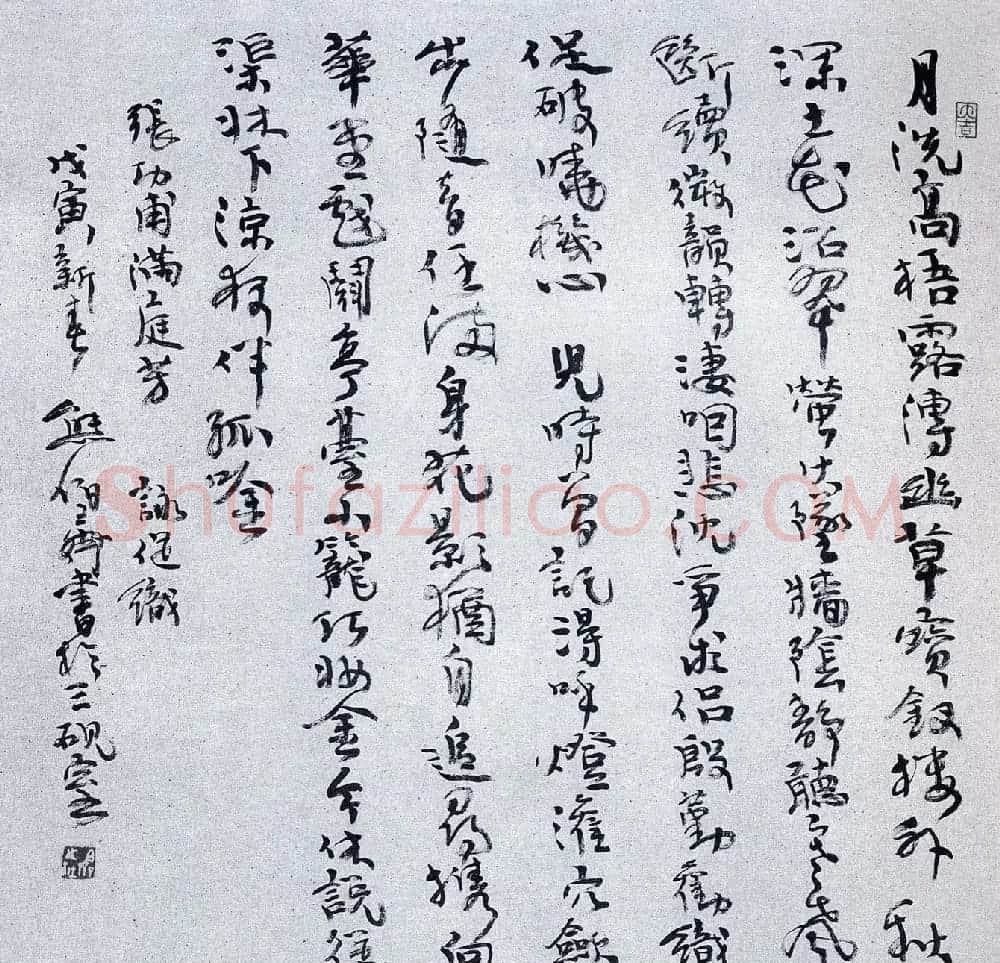 月洗高梧露漙幽草寶釵樓外秋
深土花沿翠螢火墜牆陰靜聽寒聲
斷續微韻轉淒咽悲沈爭求侶殷勤勸織
促破曉機心兒時曾記得呼燈灌穴斂
步隨音任滿身花影猶自追尋攜向
華堂戲鬪亭臺小籠巧妝金今休說從
渠牀下涼夜伴孤吟
張功甫滿庭芳詠促織
戊寅新春熊伯齊書於三硯室
Shufaziliao.COM